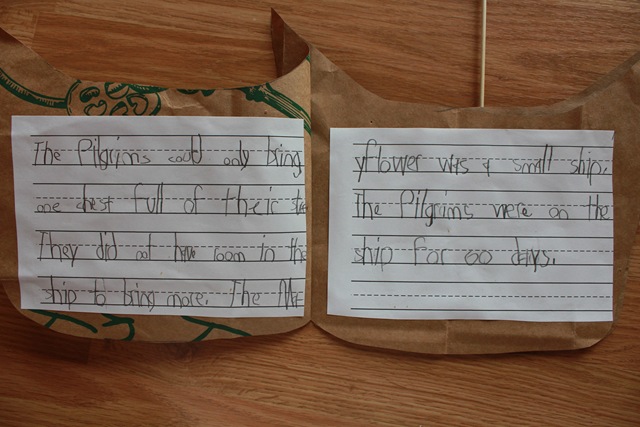 The Pilgrims could only bring
one chest full of their
They did not have room in the
ship to bring more. The Ma
yflower was a small ship.
The Pilgrims were on the
ship for 60 days.